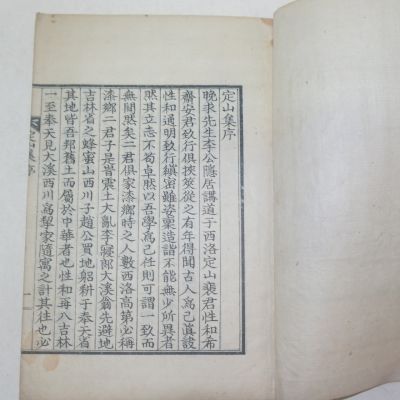 定山集序
晚求先生李公隱居講道于西洛定山裵君性和希
齋安君致行俱挾筴從之有年得聞古人爲己眞訣
性和通明致行縝密雖姿稟造詣不能無少所異者
然其立志不苟卓然以吾學爲己任則可謂一致而
無間然矣二君俱家漆鄉時之人數西洛高第必稱
漆鄉二君子是啓震土大亂李寢郎大溪翁先避地
吉林省之蜂蜜山西川子趙公買地躬耕于奉天省
其地皆吾邦舊土而屬於中華者也性和再入吉林
一至奉天見大溪西川爲挈家隨寓之計其往也必
定山集序
一